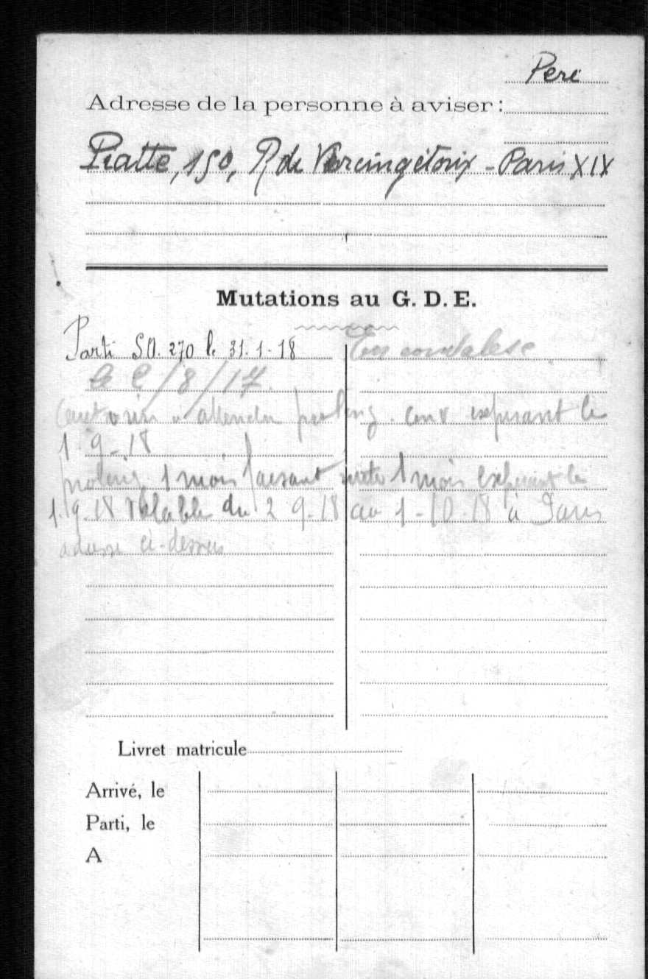 Père
Adresse de la personne à aviser :
Piatte, 150, R de Vercingétorix - Paris XIX
Mutations au G. D. E.
Parti S.O. 270 le 31-1-18
En convalesc
8/17
prolong. conv expirant le
1-9-18
prolong 1 mois faisant suite 1 mois expirant le
1-9-18 valable du 2 9-18 au 1-10-18 à Paris
adresse ci-dessus
Livret matricule
Arrivé, le
Parti, le
A